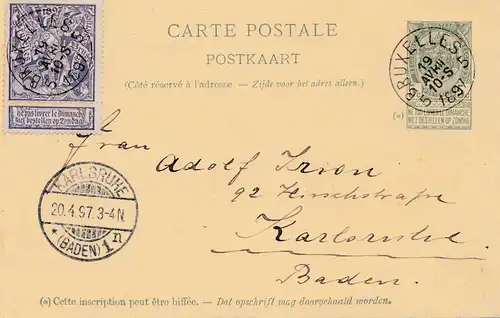 CARTE POSTALE
POSTKAART
(Côté réservé à l'adresse. — Zijde voor het adres alleen.)
BRUXELLES 5
19
AVRIL
10-S
1897
BRUXELLES 5
19
AVRIL
10-S
1897
Ne pas livrer le Dimanche
Niet bestellen op Zondag
(*)
NE PAS LIVRER LE DIMANCHE
NIET BESTELLEN OP ZONDAG
Frau
Adolf Irion
92 Hirschstraße
Karlsruhe
Baden.
KARLSRUHE
20.4.97.3-4N.
* (BADEN) 1n
(*) Cette inscription peut être biffée. — Dat opschrift mag doorgehaald worden.